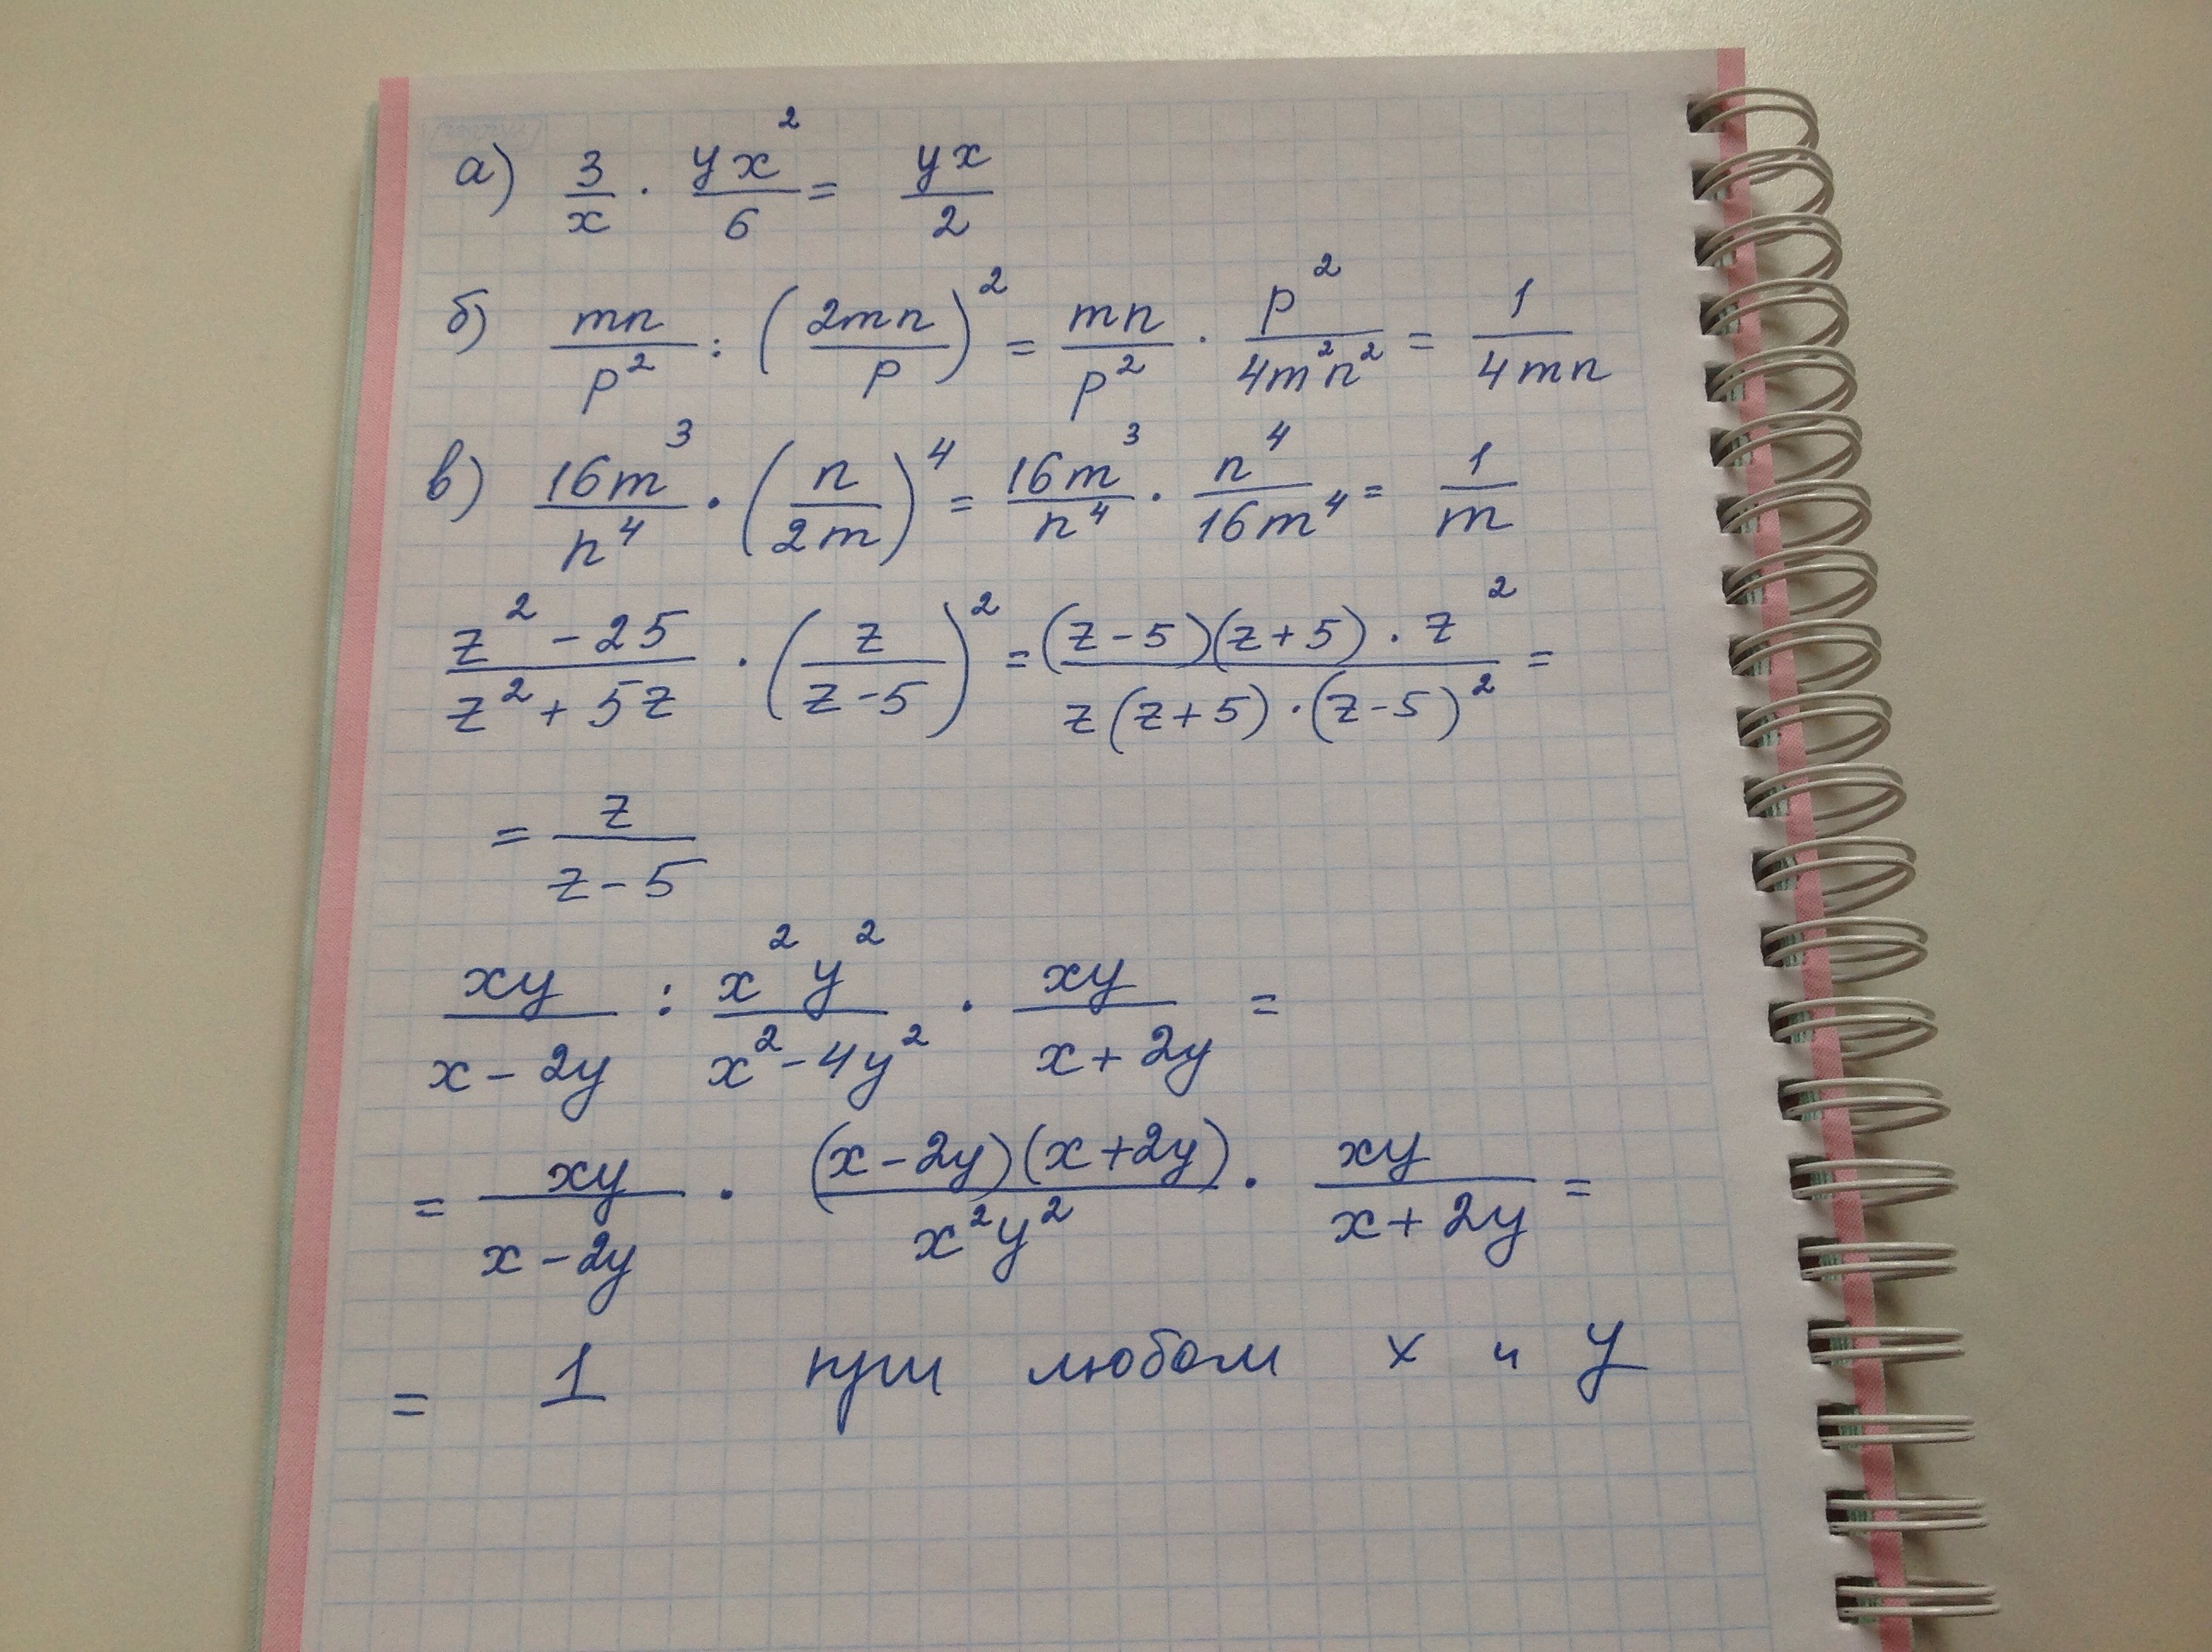 а) 3/x · yx²/6 = yx/2
б) mn/p² : (2mn/p)² = mn/p² · p²/4m²n² = 1/4mn
в) 16m³/n⁴ · (n/2m)⁴ = 16m³/n⁴ · n⁴/16m⁴ = 1/m
z²-25/z²+5z · (z/z-5)² = (z-5)(z+5)·z²/z(z+5)·(z-5)² =
= z/z-5
xy/x-2y : x²y²/x²-4y² · xy/x+2y =
= xy/x-2y · (x-2y)(x+2y)/x²y² · xy/x+2y =
= 1 при любом x и y